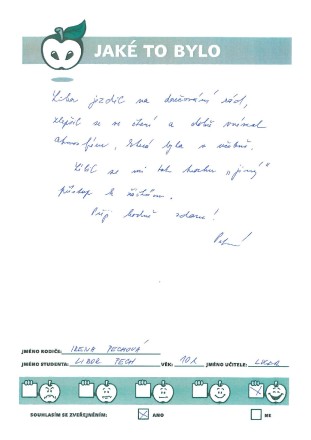 JAKÉ TO BYLO
Libor jezdil na doučování rád,
zlepšil se ve čtení a dobře vnímal
atmosféru, která byla v učebně.
Líbil se mi tak trochu „jiný“
přístup k žákům.
Přeji hodně zdaru!
JMÉNO RODIČE: IRENA PECHOVÁ
JMÉNO STUDENTA: LIBOR PECH VĚK: 10 JMÉNO UČITELE:
SOUHLASÍM SE ZVEŘEJNĚNÍM: ANO NE